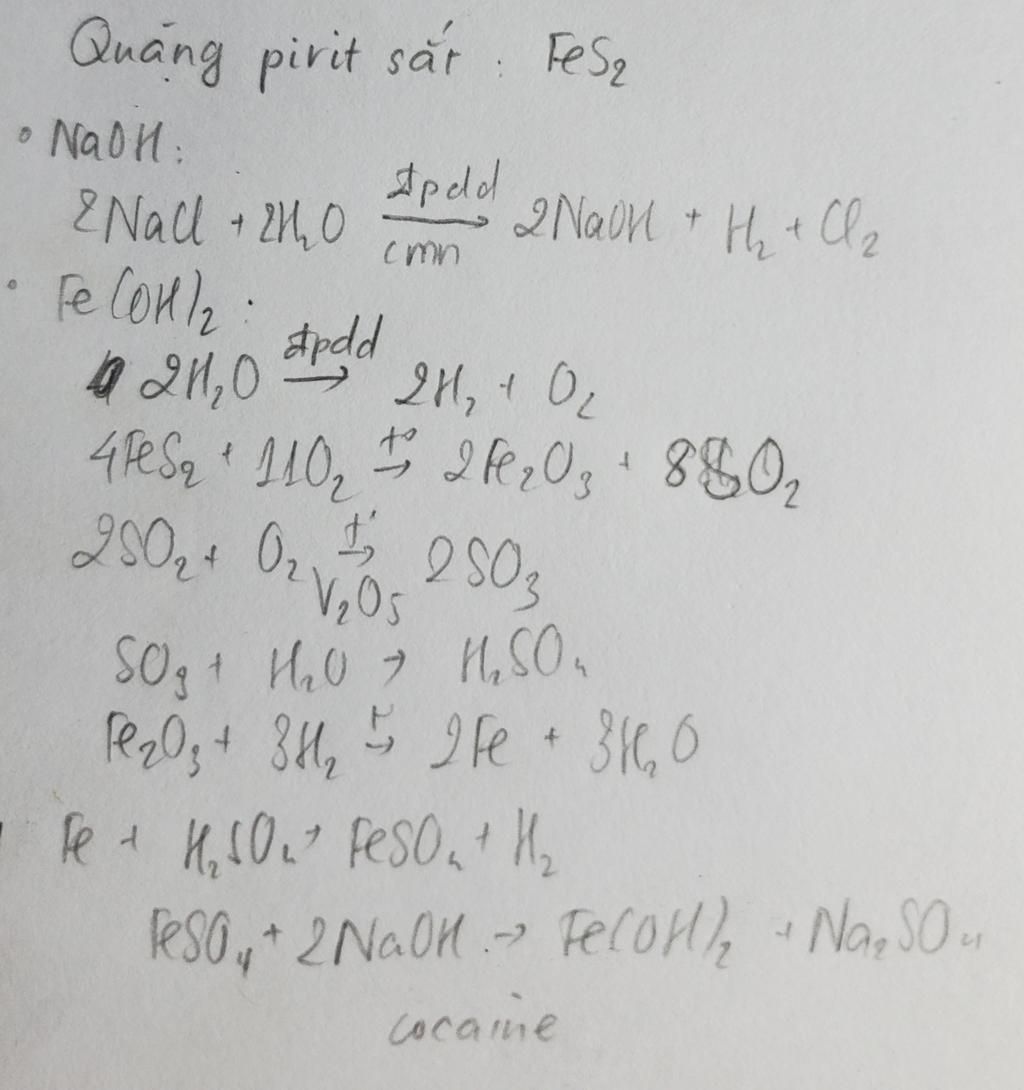 Quặng pirit sắt : FeS₂
• NaOH :
2NaCl + 2H₂O đpdd → cmn 2NaOH + H₂ + Cl₂
• Fe(OH)₂ :
2H₂O đpdd → 2H₂ + O₂
4FeS₂ + 11O₂ t° → 2Fe₂O₃ + 8SO₂
2SO₂ + O₂ t° → V₂O₅ 2SO₃
SO₃ + H₂O → H₂SO₄
Fe₂O₃ + 3H₂ t° → 2Fe + 3H₂O
Fe + H₂SO₄ → FeSO₄ + H₂
FeSO₄ + 2NaOH → Fe(OH)₂ + Na₂SO₄
cocaine